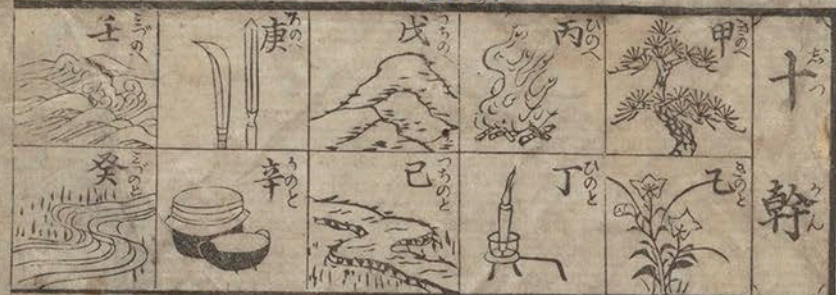 十幹
じつかん
甲
きのへ
乙
きのと
丙
ひのへ
丁
ひのと
戊
つちのへ
己
つちのと
庚
かのへ
辛
かのと
壬
みづのへ
癸
みづのと